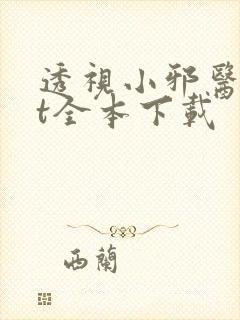 透視小邪醫
t全本下載
西蘭